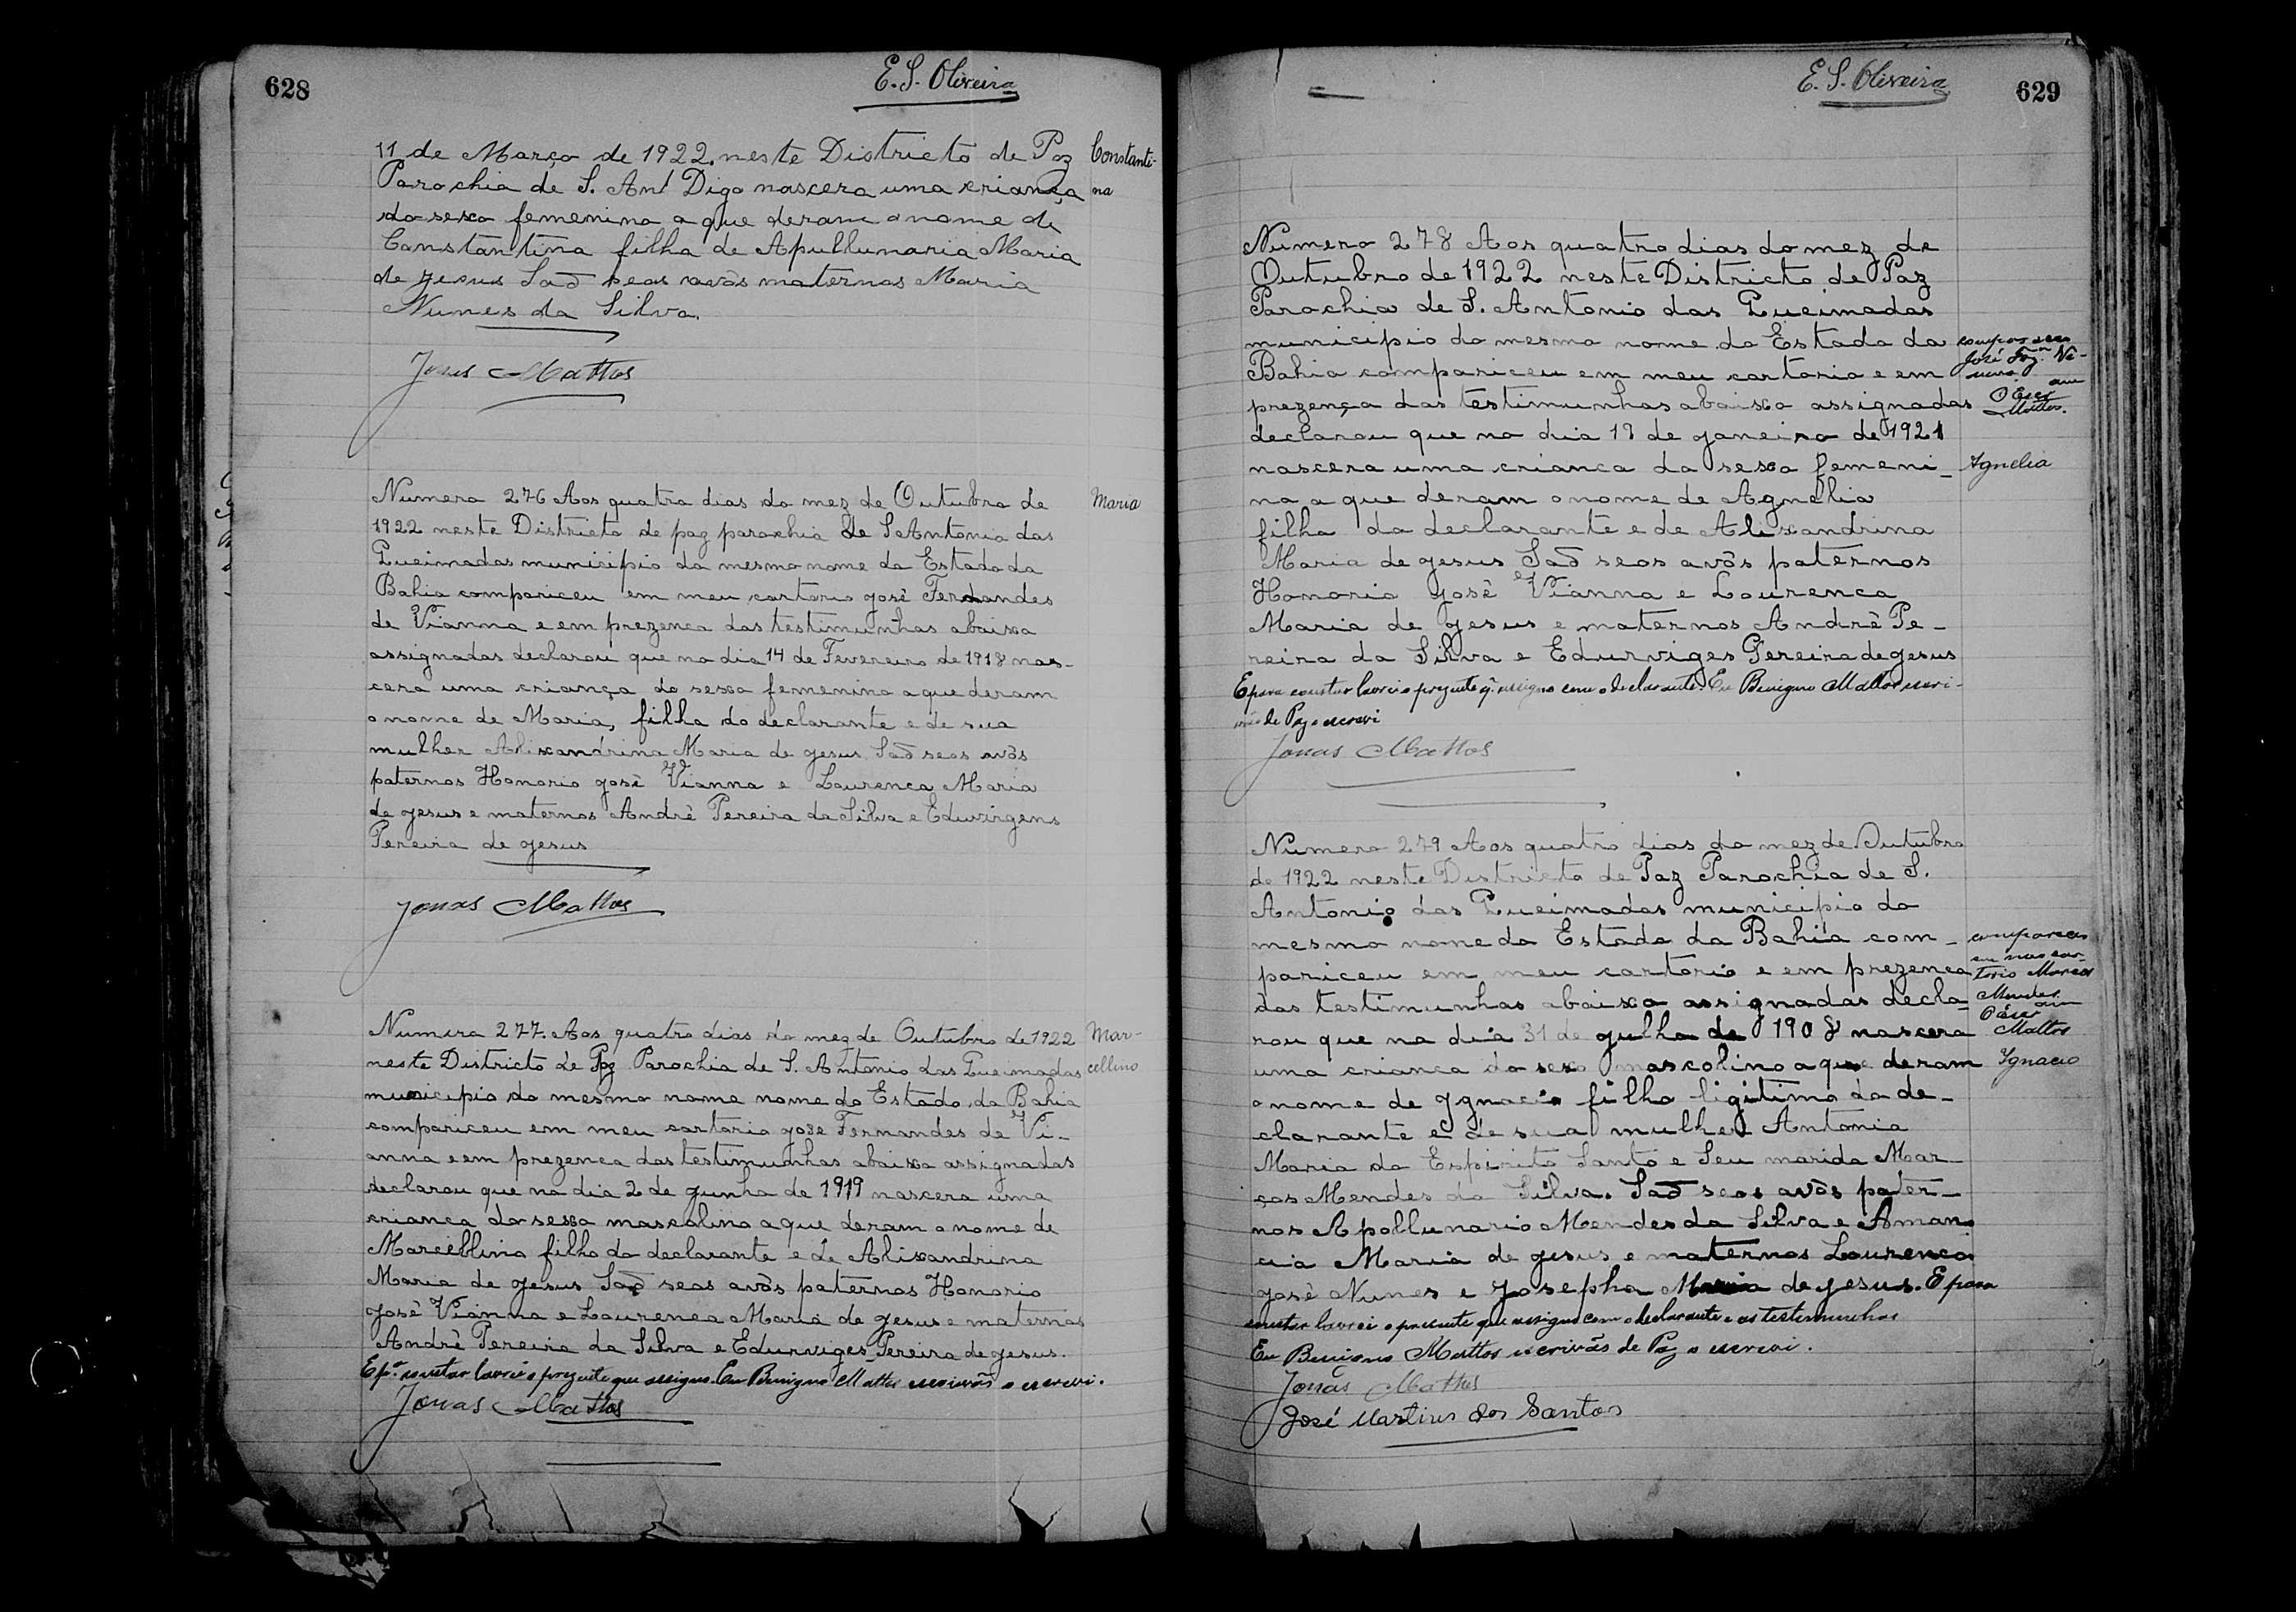 628
E. S. Oliveira
11 de Março de 1922. neste Districto de Paz
Constanti-
na
Parochia de S. Ant Digo nascera uma criança
do sexo femenino a que deram o nome de
Constantina filha de Apullunaria Maria
de Jesus Saõ seos avôs maternos Maria
Nunes da Silva.
Jonas Mattos
Numero 276 Aos quatro dias do mez de Outubro de
Maria
1922 neste Districto de paz parochia de S Antonio das
Queimadas municipio do mesmo nome do Estado da
Bahia compariceu em meu cartorio José Fernandes
de Vianna e em prezenca das testimunhas abaixo
assignadas declarou que no dia 14 de Fevereiro de 1918 nas-
cera uma criança do sexo femenino a que deram
o nome de Maria, filha do declarante e de sua
mulher Alixandrina Maria de Jesus Saõ seos avôs
paternos Honorio José Vianna e Lourenca Maria
de Jesus e maternos Andrê Pereira da Silva e Eduvirgens
Pereira de Jesus
Jonas Mattos
Numero 277. Aos quatro dias do mez de Outubro de 1922
Mar-
cellino
neste Districto de Paz Parochia de S. Antonio das Queimadas
municipio do mesmo nome nome do Estado da Bahia
compariceu em meu cartorio José Fernandes de Vi-
anna e em prezenca das testimunhas abaixo assignadas
declarou que no dia 2 de Junho de 1919 nascera uma
crianca do sexo mascolino a que deram o nome de
Marcellino filho do declarante e de Alixandrina
Maria de Jesus Saõ seos avôs paternos Honorio
José Vianna e Lourenca Maria de Jesus e maternos
Andrê Pereira da Silva e Edurviges Pereira de Jesus.
E pª constar lavrei o prezente que assigno. Eu Benigno Mattos escrivão o escrevi.
Jonas Mattos
E. S. Oliveira
629
Numero 278 Aos quatro dias do mez de
Outubro de 1922 neste Districto de Paz
Parochia de S. Antonio das Queimadas
municipio do mesmo nome do Estado da
compareceu
José Vi-
anna
Bahia compariceu em meu cartorio e em
prezença das testimunhas abaixo assignadas
Mattos.
declarou que no dia 19 de Janeiro de 1921
nascera uma crianca do sexo femeni-
Agnelia
no a que deram o nome de Agnélia
filha do declarante e de Alixandrina
Maria de Jesus Saõ seos avôs paternos
Honorio José Vianna e Lourenca
Maria de Jesus e maternos Andrê Pe-
reira da Silva e Edurviges Pereira de Jesus
E para constar lavrei o prezente q. assigno com o declarante. Eu Benigno Mattos escri-
vão de Paz o escrevi
Jonas Mattos
Numero 279 Aos quatro dias do mez de Outubro
de 1922 neste Districto de Paz Parochia de S.
Antonio das Queimadas municipio do
mesmo nome do Estado da Bahia com-
compareceu
em meu car-
torio Marcos
Mendes
pariceu em meu cartorio e em prezenca
das testimunhas abaixo assignadas decla-
Mattos
rou que no dia 31 de Julho de 1908 nascera
uma crianca do sexo mascolino a que deram
Ignacio
o nome de Ignacio filho ligitimo do de-
clarante e de sua mulher Antonia
Maria do Espirito Santo e Seu marido Mar-
cos Mendes da Silva. Saõ seos avôs pater-
nos Apollunario Mendes da Silva e Aman-
cia Maria de Jesus e maternos Lourenco
José Nunes e Josepha Maria de Jesus. E para
constar lavrei o prezente que assigno com o declarante e as testemunhas
Eu Benigno Mattos escrivão de Paz o escrevi.
Jonas Mattos
José Martins dos Santos